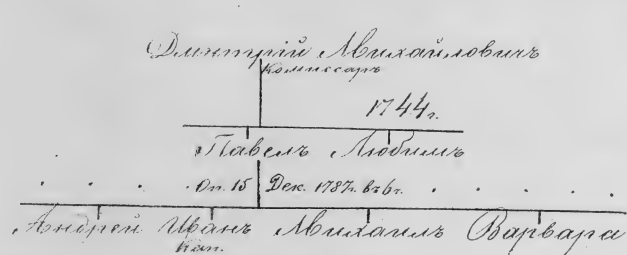 Дмитрій Михайловичъ
Комиссаръ
1744г.
Павелъ Любимъ
Оп. 15 Дек. 1787г. въ 6г.
Андрей Иванъ Михаилъ Варвара
Кап.